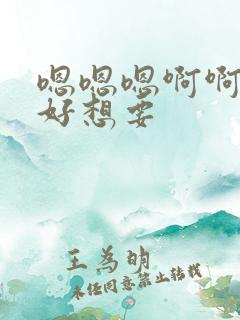 嗯嗯嗯啊啊
好想要
王为明
未经同意禁止转载